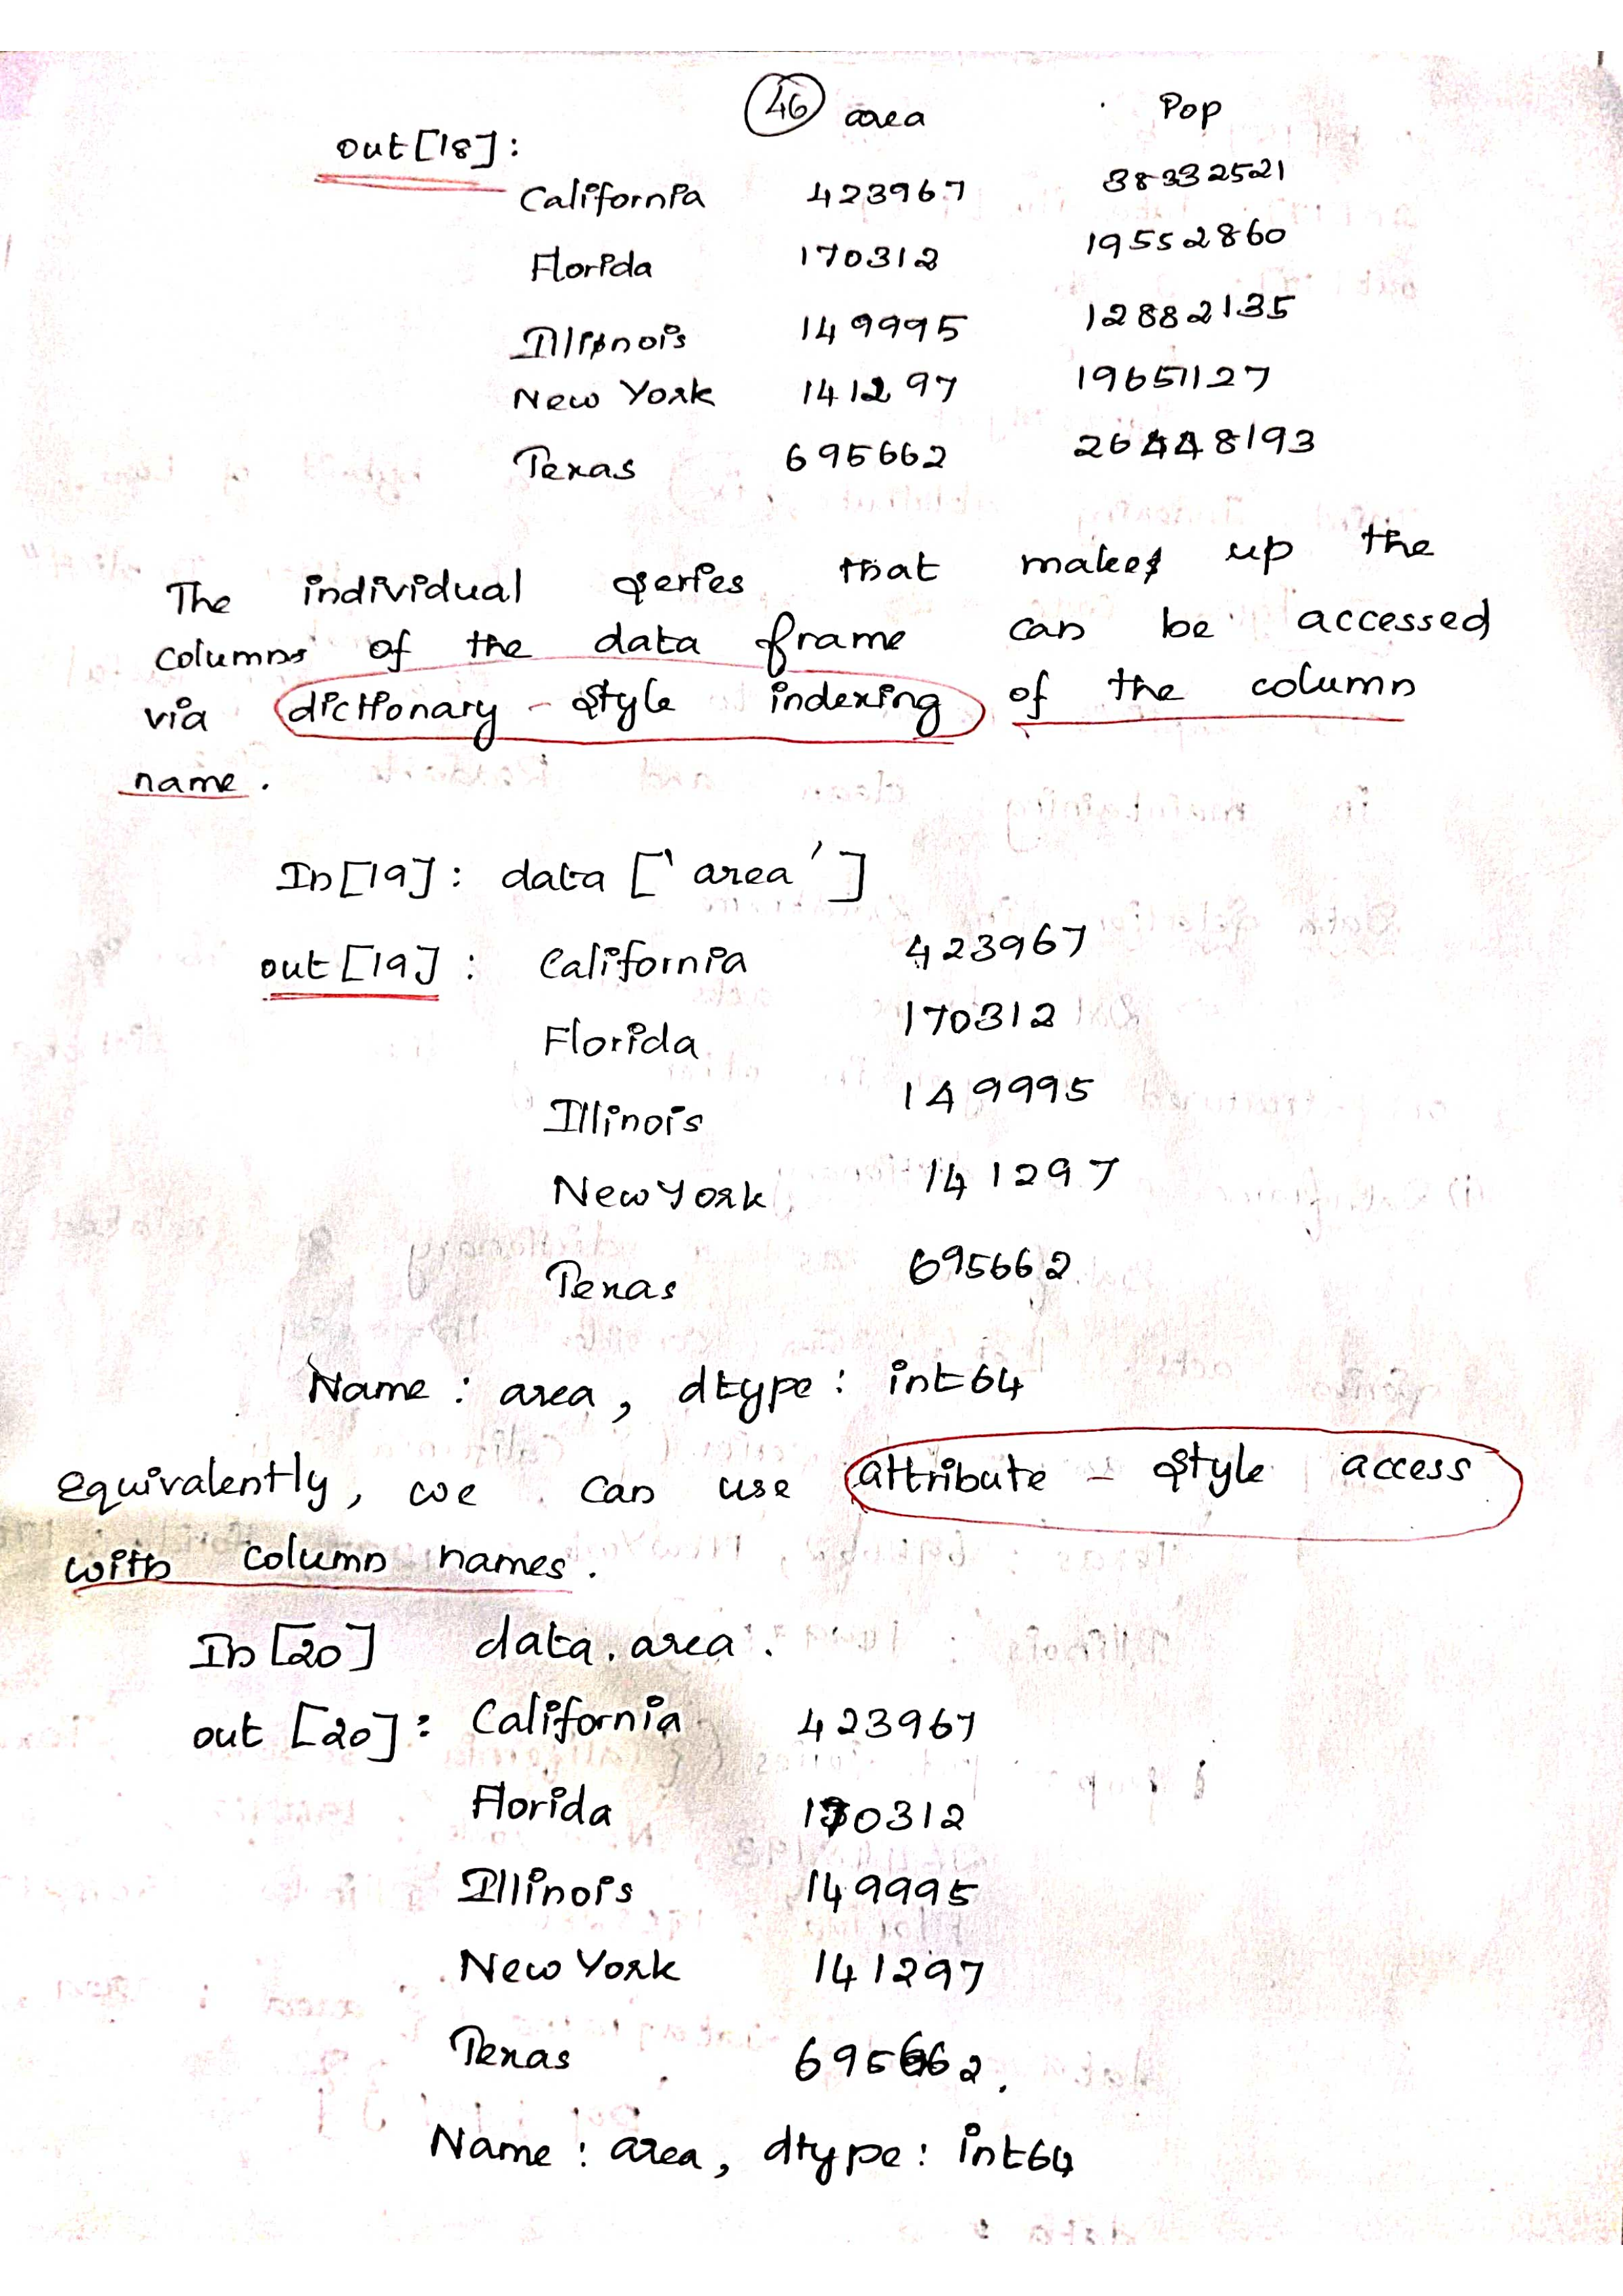 46 area Pop
out[18]:
California 423967 38332521
Florida 170312 19552860
Illinois 149995 12882135
New York 141297 19651127
Texas 695662 26448193
The individual series that makes up the
columns of the data frame can be accessed
via dictionary - style indexing of the column
name.
In[19]: data ['area']
out[19]: California 423967
Florida 170312
Illinois 149995
New York 141297
Texas 695662
Name: area, dtype: int64
equivalently, we can use attribute - style access
with column names.
In [20] data.area.
out [20]: California 423967
Florida 170312
Illinois 149995
New York 141297
Texas 695662.
Name: area, dtype: int64